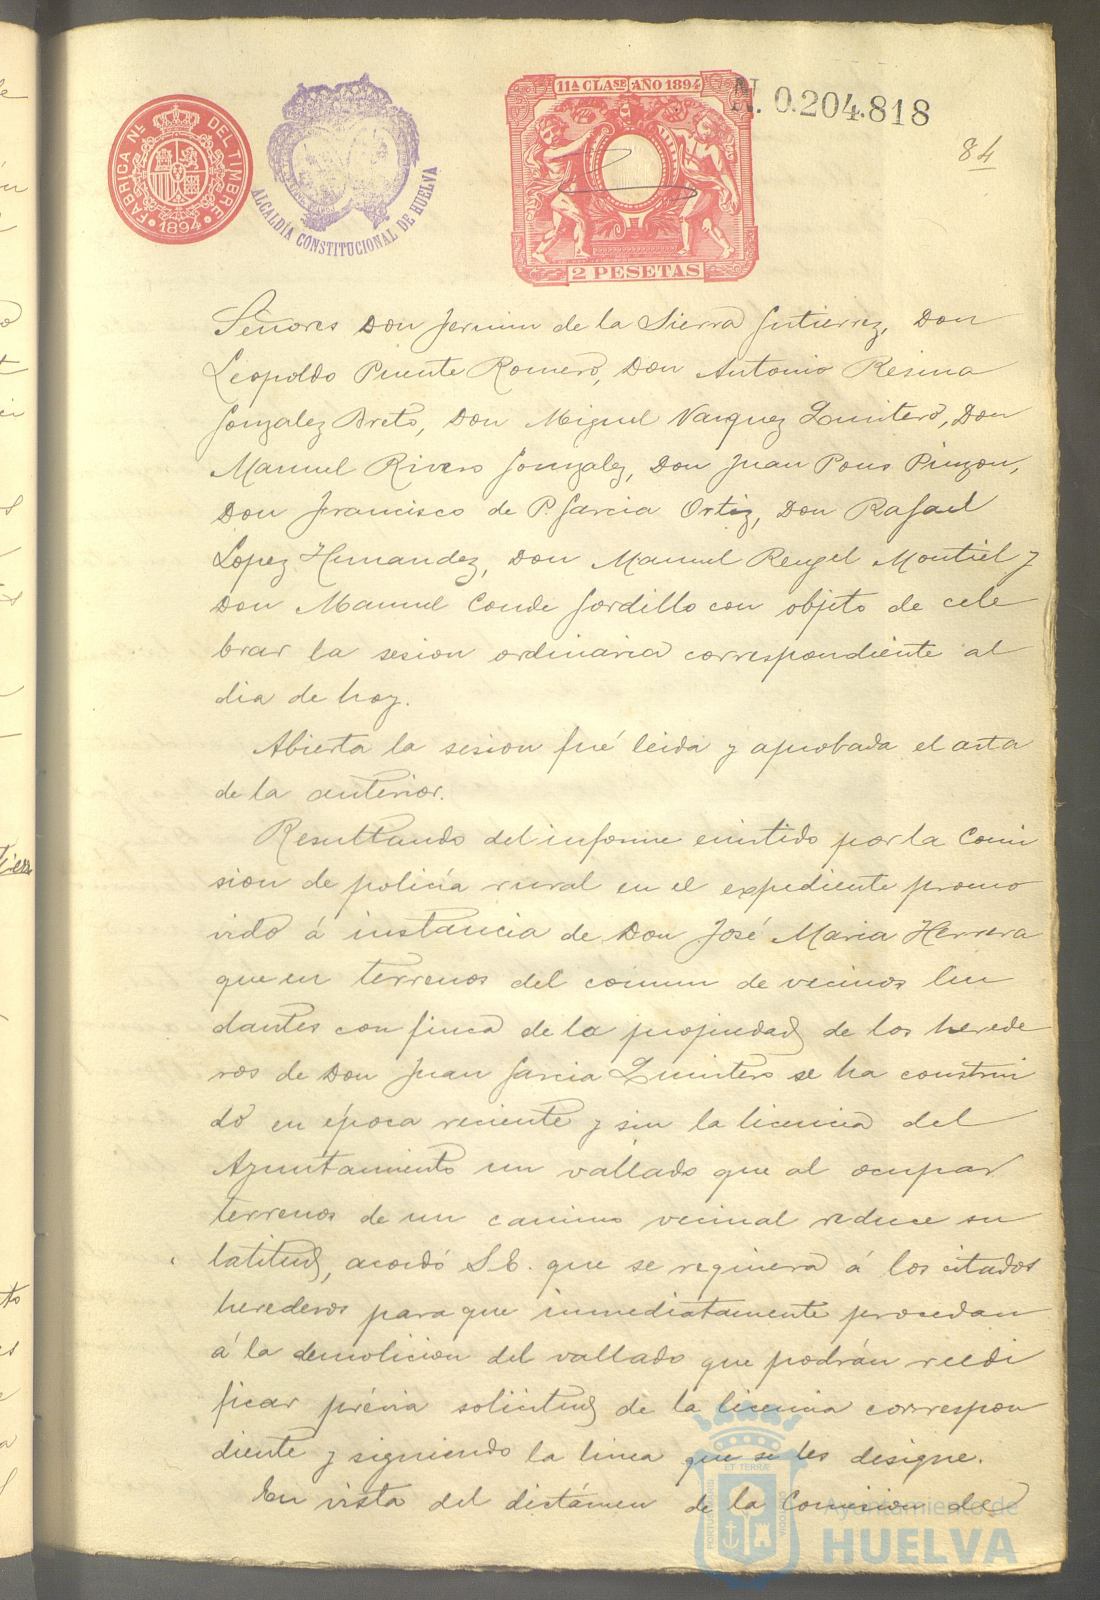 FÁBRICA NL. DEL TIMBRE
1894
ALCALDÍA CONSTITUCIONAL DE HUELVA
11ª CLASE AÑO 1894
2 PESETAS
N. 0.204.818
84
Señores Don Fermin de la Sierra Gutierrez, Don
Leopoldo Puente Romero, Don Antonio Resina
Gonzalez Breto, Don Miguel Vazquez Quintero, Don
Manuel Rivero Gonzalez, Don Juan Pons Pinzon,
Don Francisco de P. Garcia Ortiz, Don Rafael
Lopez Hernandez, Don Manuel Rengel Montiel y
Don Manuel Conde Gordillo con objeto de cele
brar la sesion ordinaria correspondiente al
dia de hoy.
Abierta la sesion fué leida y aprobada el acta
de la anterior.
Resultando del informe emitido por la Comi
sion de policía rural en el expediente promo
vido á instancia de Don José Maria Herrera
que en terrenos del comun de vecinos lin
dantes con finca de la propiedad de los herede
ros de Don Juan Garcia Quintero se ha construi
do en época reciente y sin la licencia del
Ayuntamiento un vallado que al ocupar
terrenos de un camino vecinal reduce su
latitud, acordó S.E. que se requiera á los citados
herederos para que inmediatamente procedan
á la demolicion del vallado que podrán reedi
ficar prévia solicitud de la licencia correspon
diente y siguiendo la linea que se les designe.
En vista del dictámen de la Comision de
Ayuntamiento de
HUELVA